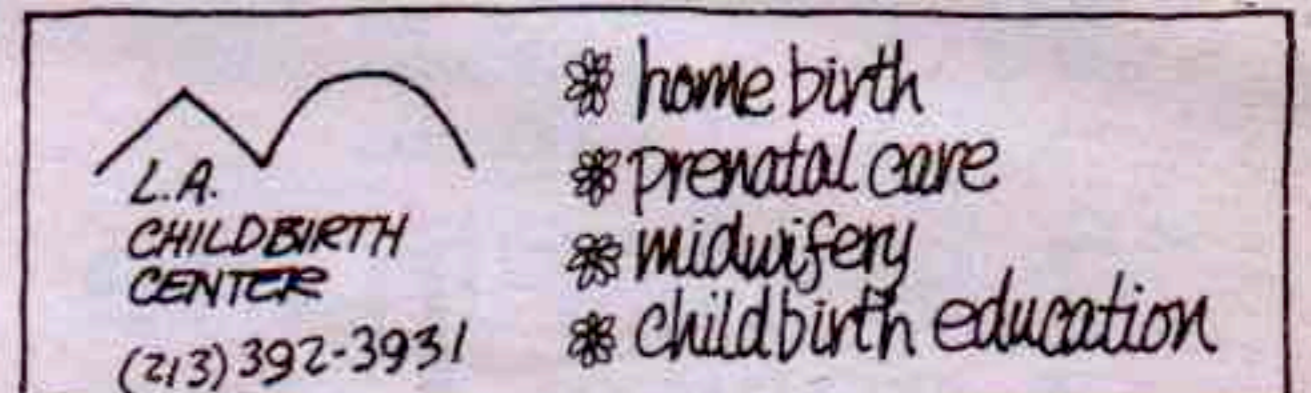 L.A.
CHILDBIRTH
CENTER
(213) 392-3931
home birth
prenatal care
midwifery
childbirth education